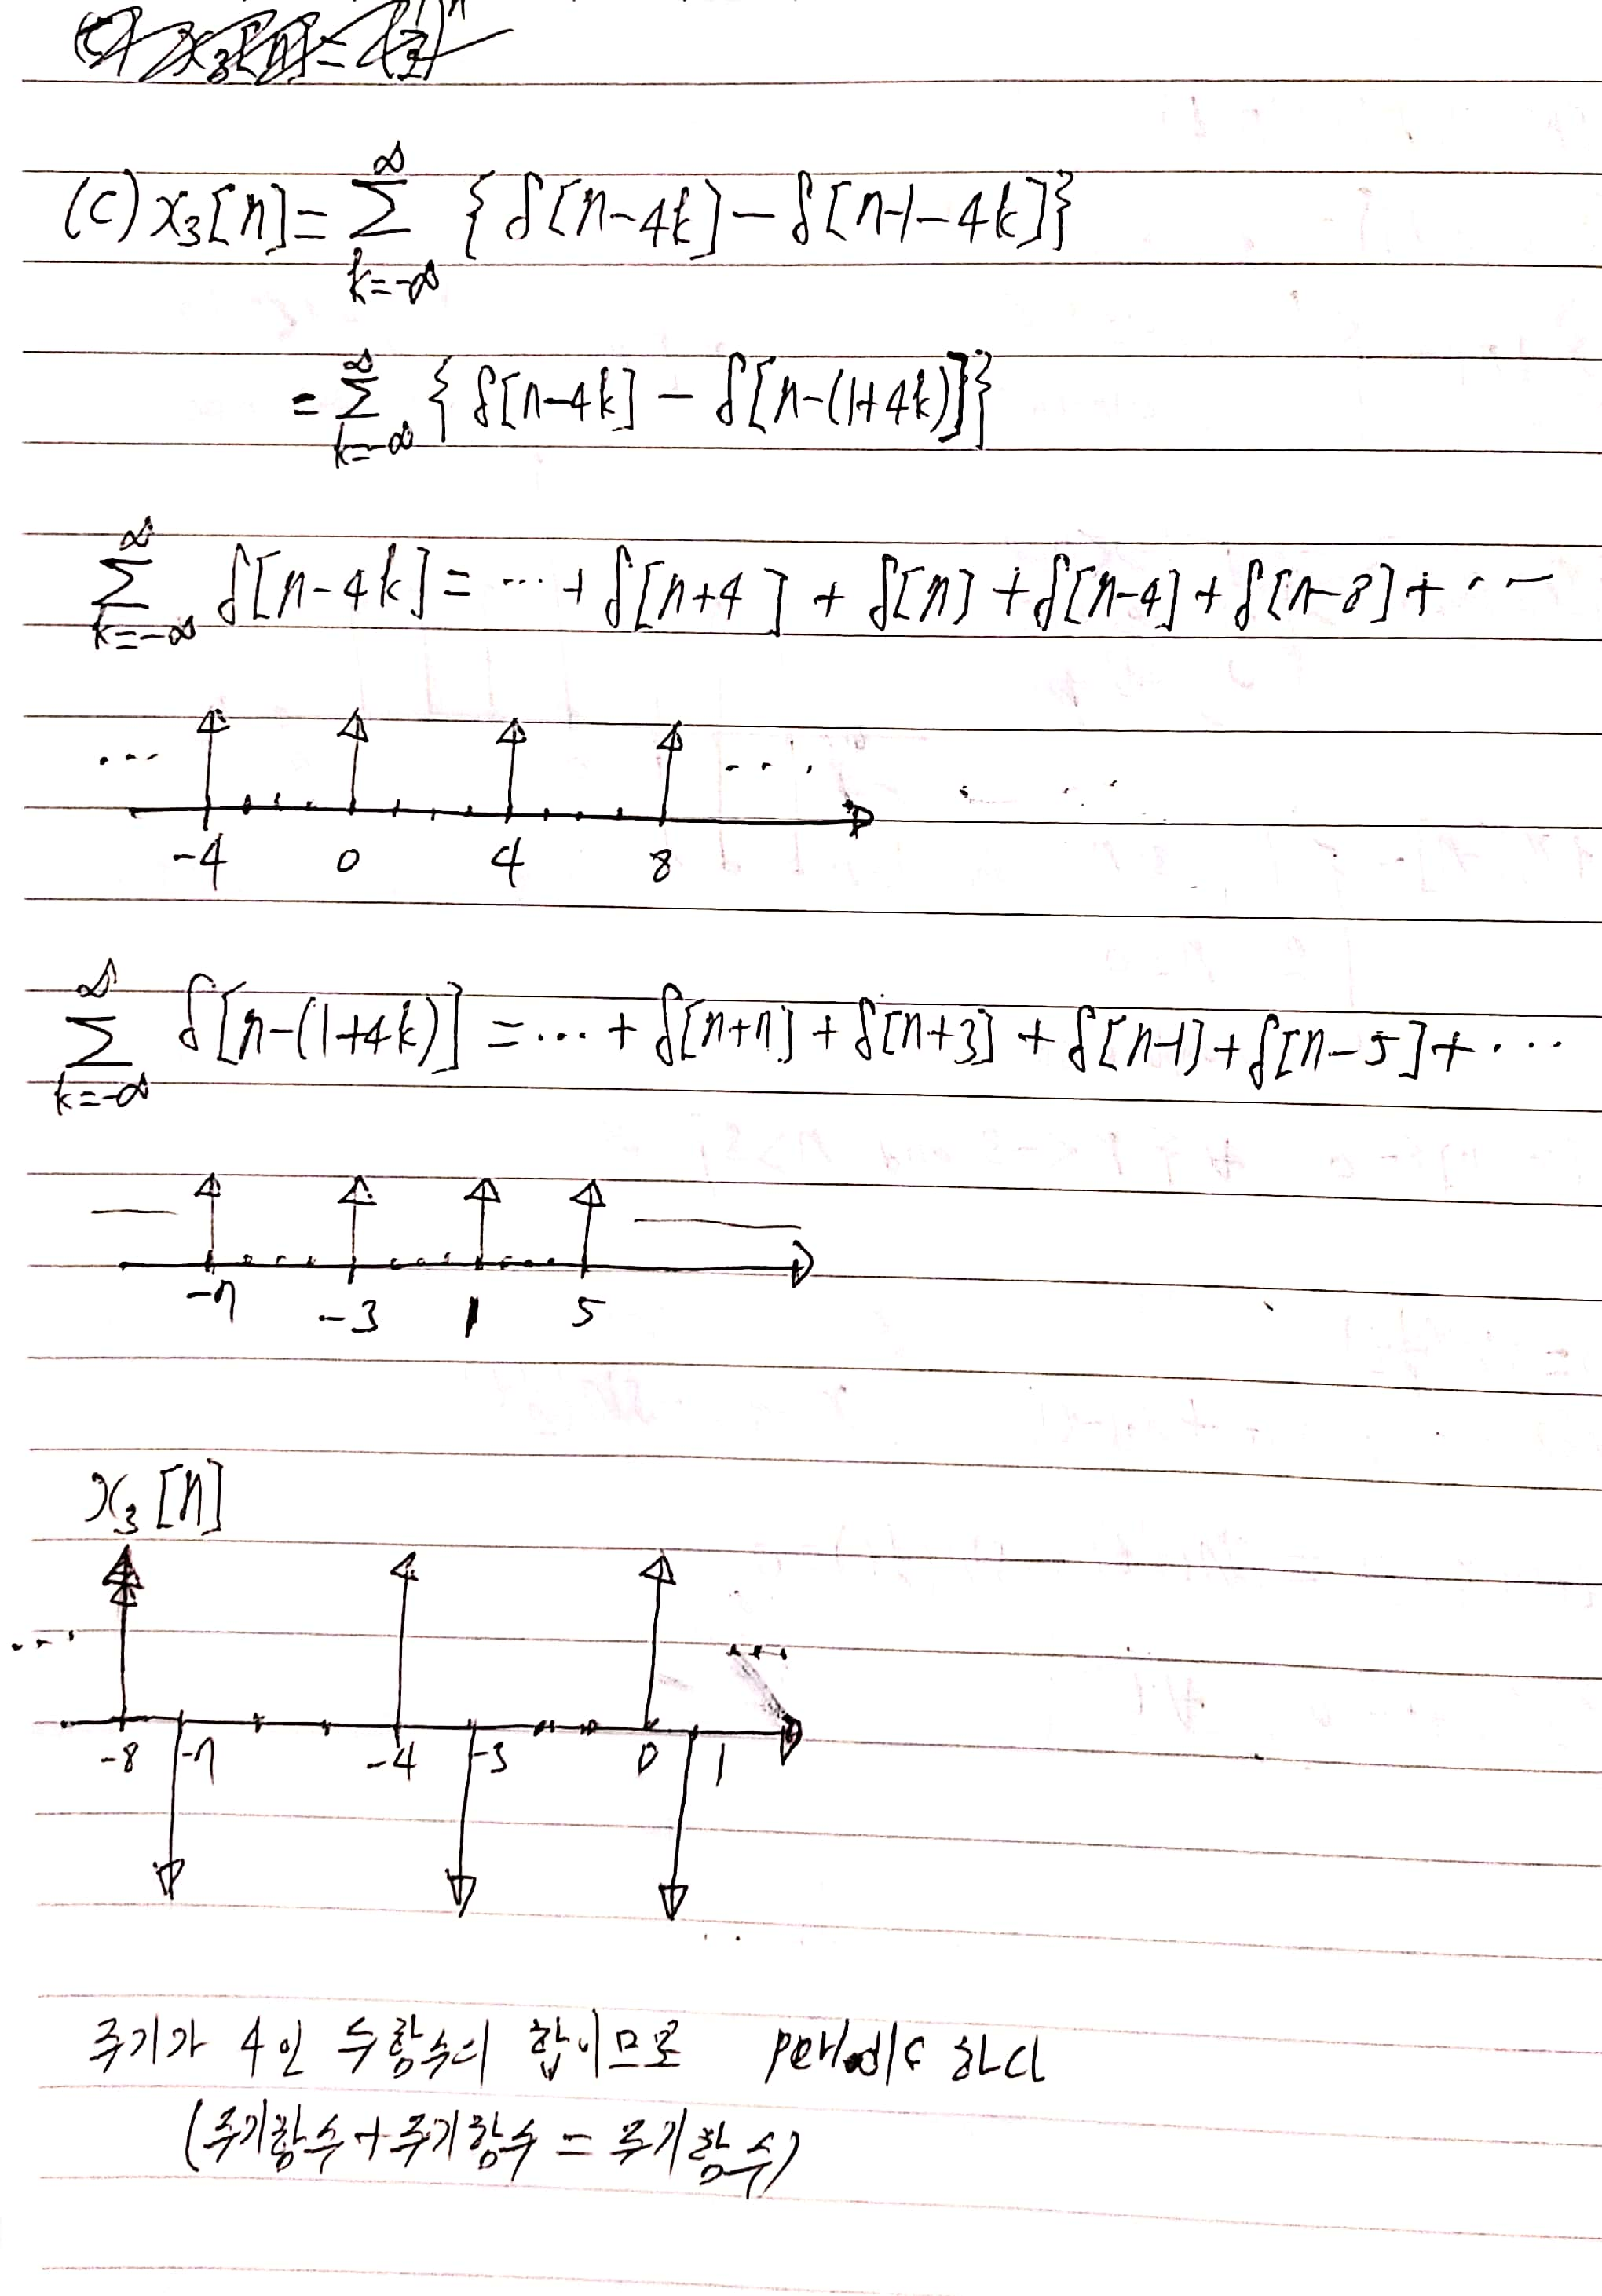 (c) x₃[n] = ∑_{k=-∞}^{∞} { δ[n-4k] - δ[n-1-4k] }
= ∑_{k=-∞}^{∞} { δ[n-4k] - δ[n-(1+4k)] }
∑_{k=-∞}^{∞} δ[n-4k] = ⋯ + δ[n+4] + δ[n] + δ[n-4] + δ[n-8] + ⋯
-4 0 4 8
∑_{k=-∞}^{∞} δ[n-(1+4k)] = ⋯ + δ[n+7] + δ[n+3] + δ[n-1] + δ[n-5] + ⋯
-7 -3 1 5
x₃[n]
-8 -7 -4 -3 0 1
주기가 4인 두함수의 합이므로 periodic 하다
(주기함수 + 주기함수 = 주기함수)